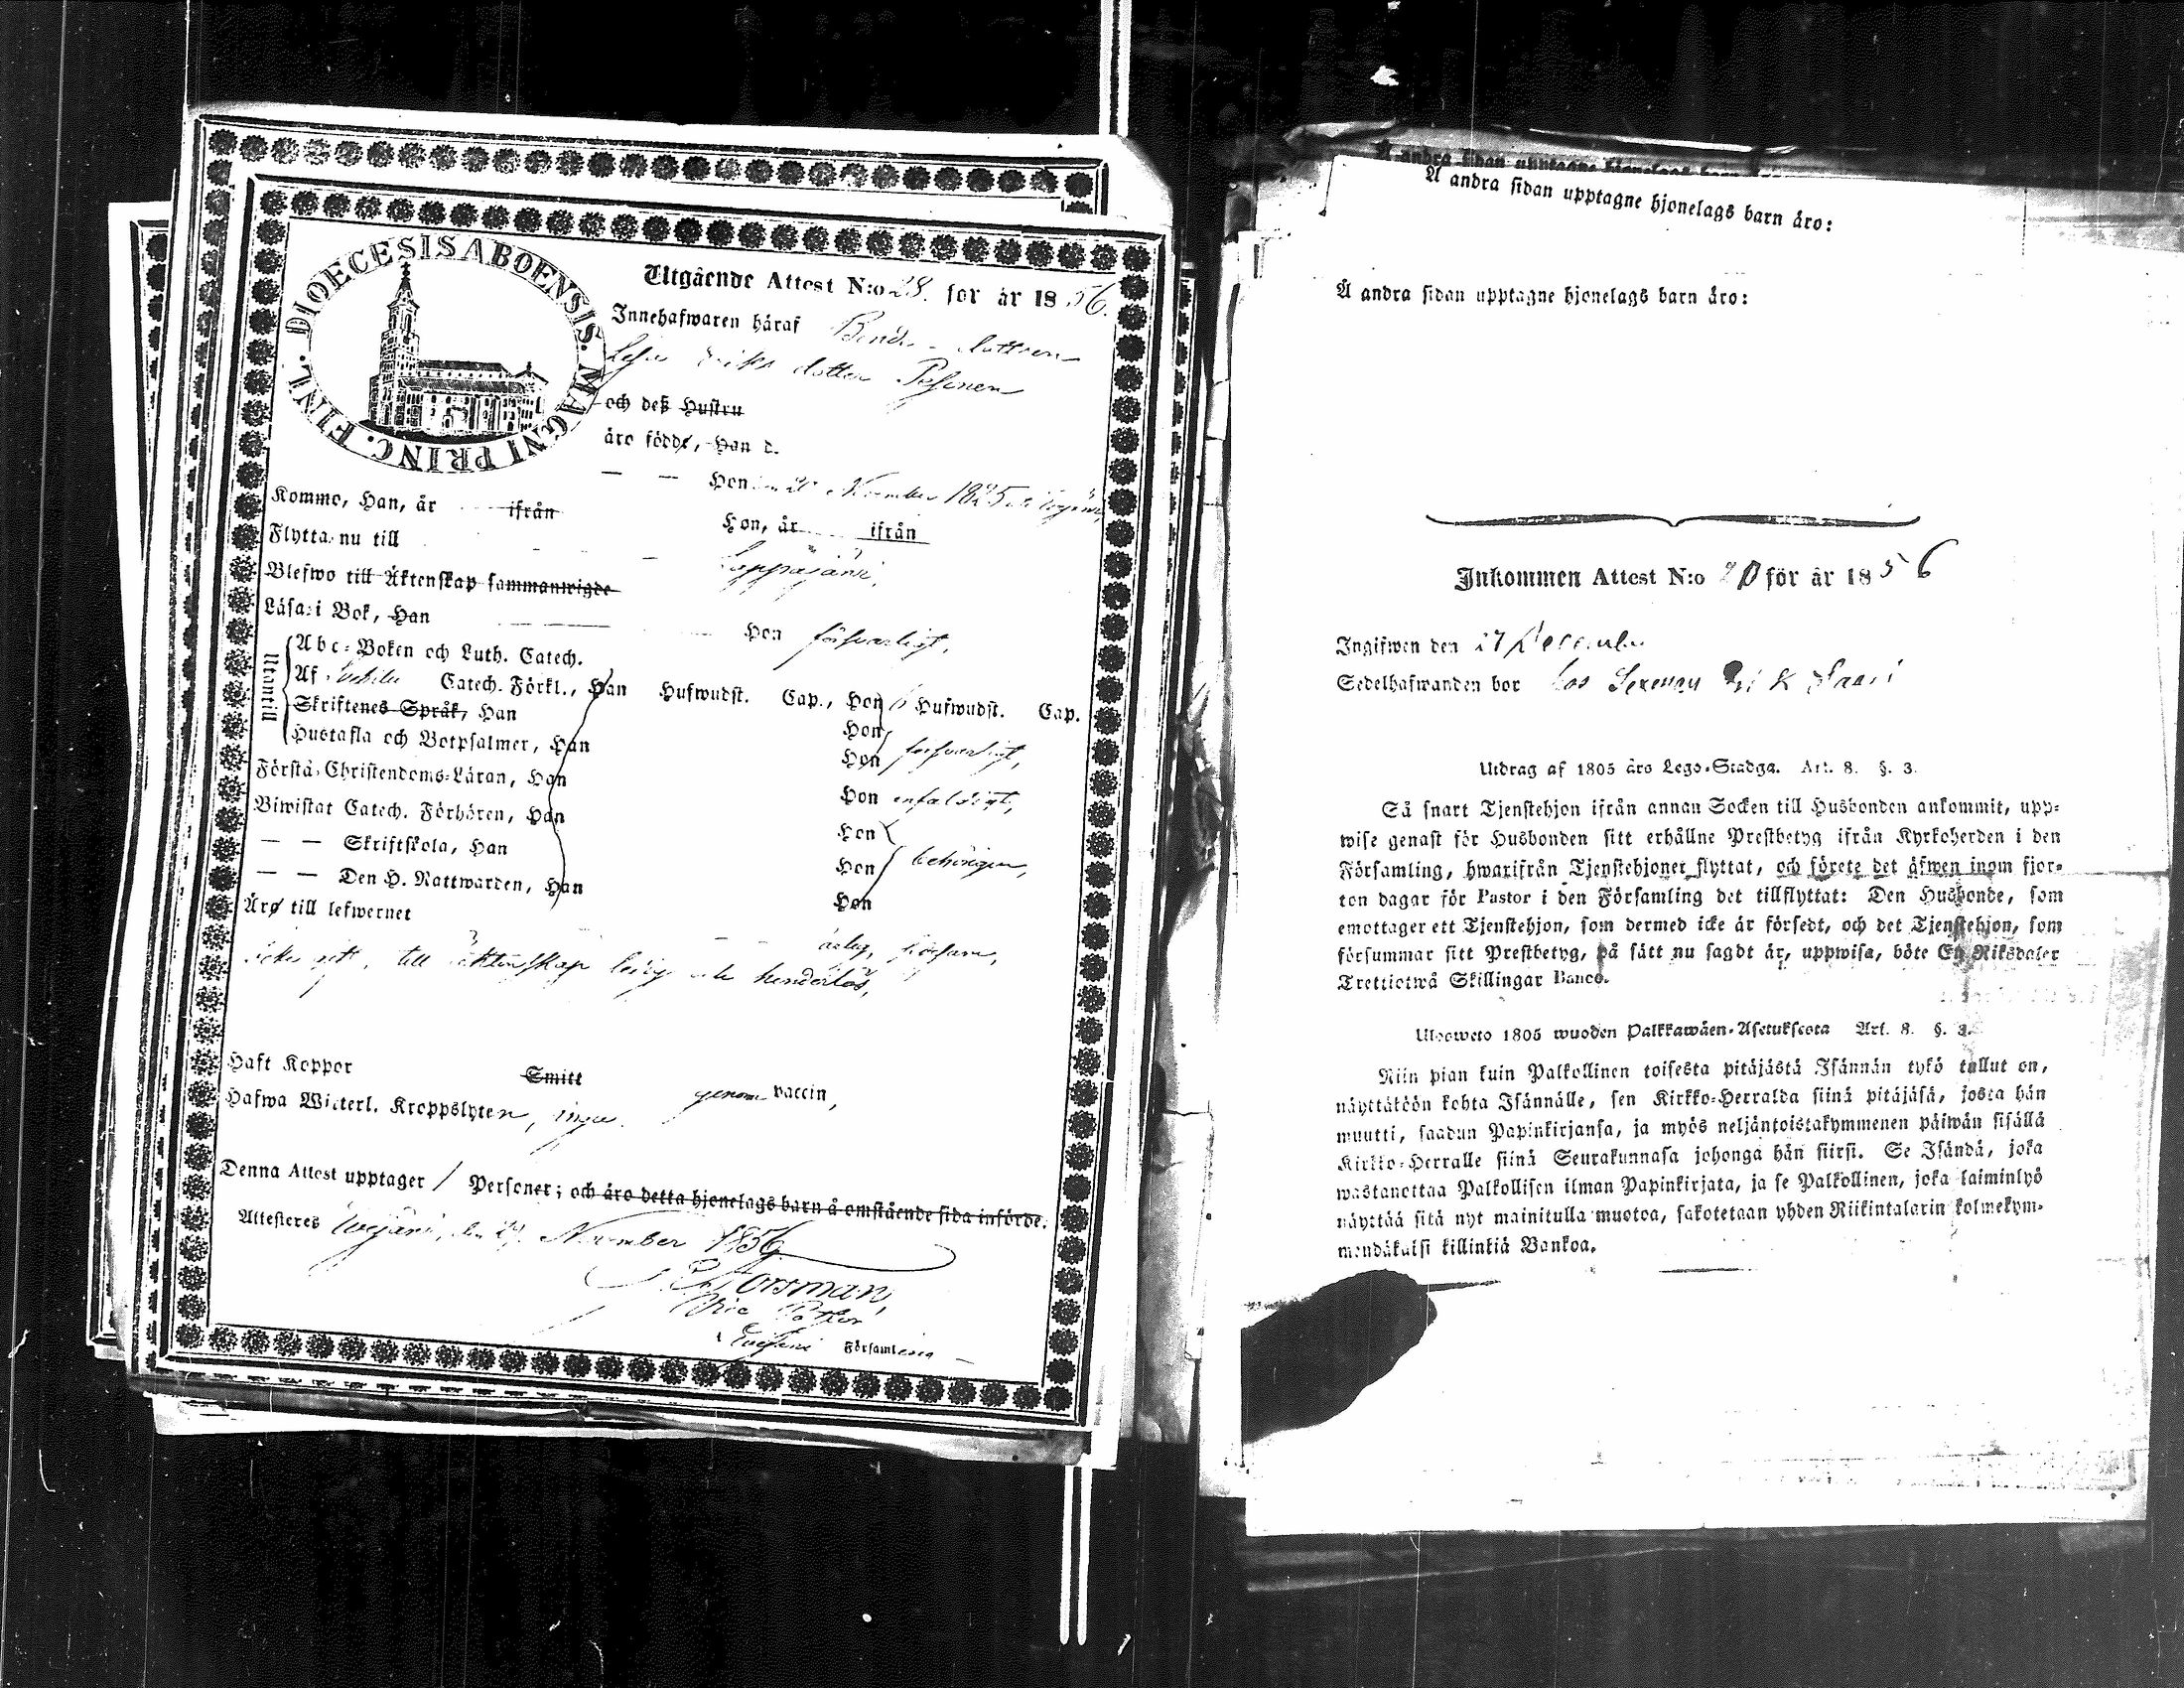 DIOECESIS ABOENSIS. MAGNI PRINC. FINL.
Utgående Attest N:o 28. for år 1856.
Innehafwaren häraf Bonde-dottren
Eriks dotter Posonen
och deß Hustru
äro född, Han d.
— — Hon November 1825
Komme, Han, år ifrån Hon, år ifrån
Flytta nu till Lappajärvi.
Blefwo till Äktenskap sammanwigde
Läsa i Bok, Han Hon försvarligt,
Utantill
Abc-Boken och Luth. Catech.
Af Catech. Förkl., Han Hufwudst. Cap., Hon 6 Hufwudst. Cap.
Skriftenes Språk, Han Hon
Hustafla och Botpsalmer, Han Hon försvarligt,
Förstå Christendoms-Läran, Han Hon enfaldigt,
Biwistat Catech. Förhören, Han Hon
— — Skriftskola, Han Hon behörigen,
— — Den H. Nattwarden, Han Hon
Äro till lefwernet ärlig,
till äktenskap ledig och hinderlös,
Haft Koppor Smitt genom vaccin,
Hafwa Witterl. Kroppslyten, inga.
Denna Attest upptager 1 Personer; och äro detta hjonelags barn å omstående sida införde.
Attesteres Evijärvi, den November 1856
Forsman,
Vice Pastor
i Evijärvi Församling
Å andra sidan upptagne hjonelags barn äro:
Å andra sidan upptagne hjonelags barn äro:
Å andra sidan upptagne hjonelags barn äro:
Inkommen Attest N:o 20 för år 1856
Ingifwen den 27 December
Sedelhafwanden bor hos Erik Saari
Utdrag af 1805 års Lego-Stadga. Art. 8. §. 3.
Så snart Tjenstehjon ifrån annan Socken till Husbonden ankommit, upp-
wise genast för Husbonden sitt erhållne Prestbetyg ifrån Kyrkoherden i den
Församling, hwarifrån Tjenstehjonet flyttat, och förete det äfwen inom fjor-
ton dagar för Pastor i den Församling det tillflyttat: Den Husbonde, som
emottager ett Tjenstehjon, som dermed icke är försedt, och det Tjenstehjon, som
försummar sitt Prestbetyg, på sätt nu sagdt är, uppwisa, böte En Riksdaler
Trettiotwå Skillingar Banco.
Ulosweto 1805 wuoden Palkkawäen-Asetuksesta Art. 8. §. 3.
Niin pian kuin Palkollinen toisesta pitäjästä Isännän tykö tullut on,
näyttäköön kohta Isännälle, sen Kirkko-Herralda siinä pitäjäsä, josta hän
muutti, saadun Papinkirjansa, ja myös neljäntoistakymmenen päiwän sisällä
Kirkko-Herralle siinä Seurakunnasa johonga hän siirsi. Se Isändä, joka
wastanottaa Palkollisen ilman Papinkirjata, ja se Palkollinen, joka laiminlyö
näyttää sitä nyt mainitulla muotoa, sakotetaan yhden Riikintalarin kolmekym-
mendäkaksi killinkiä Bankoa.